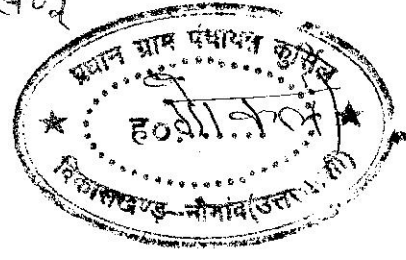 प्रधान ग्राम पंचायत कुर्सिल
ह०
विकासखण्ड-नौगांव(उत्तरकाशी)